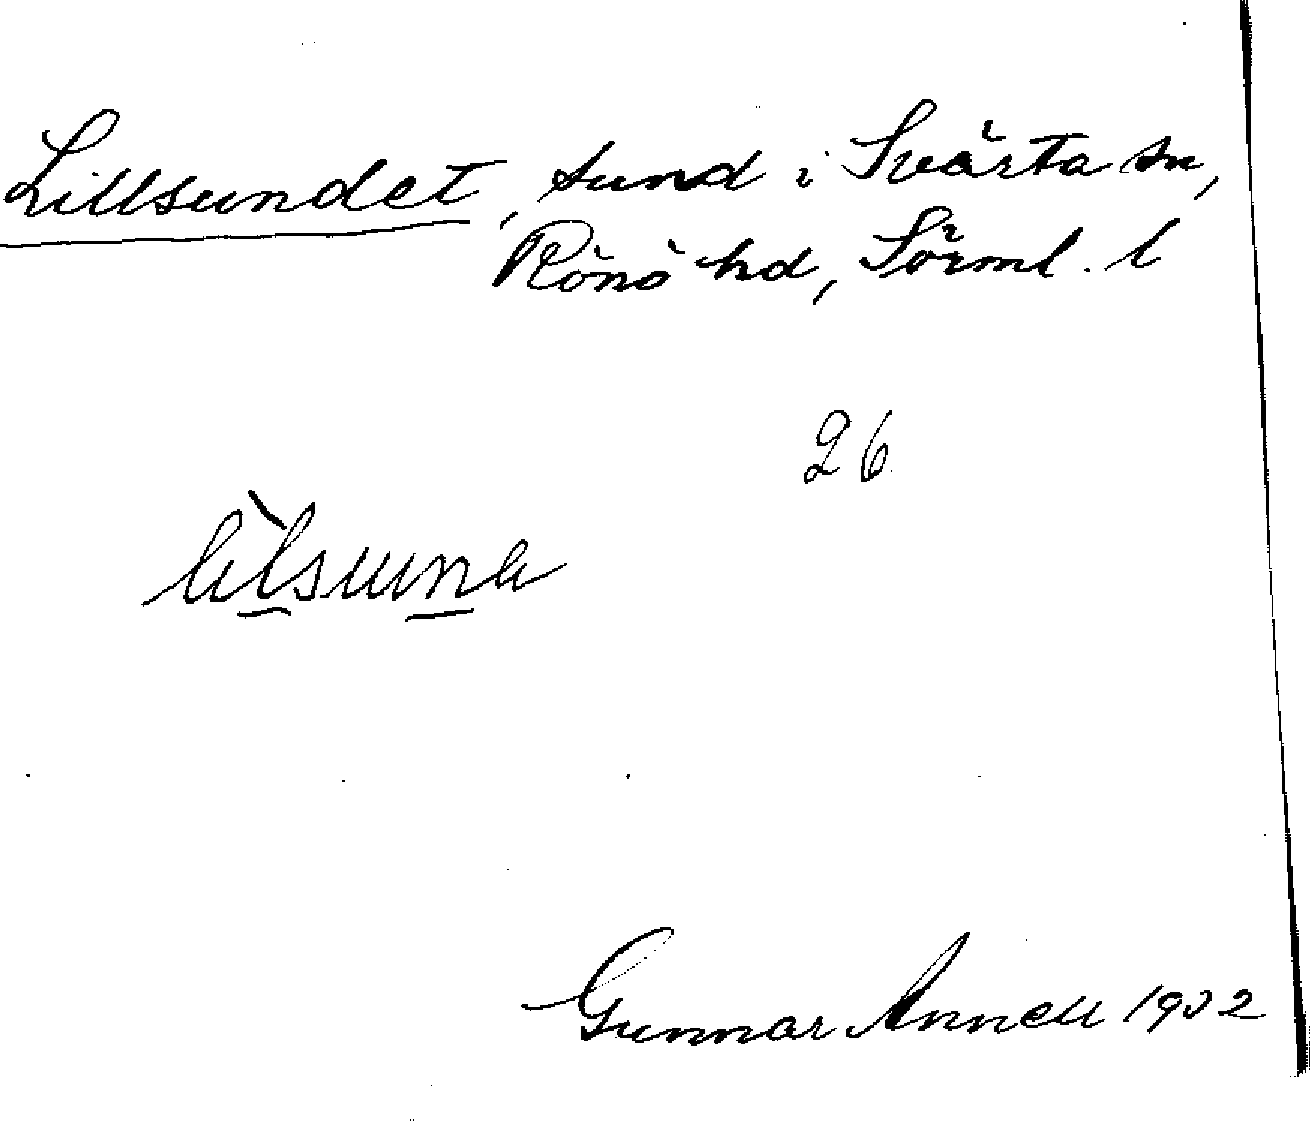 Lillsundet, sund i Svärta sn,
Rönö hd, Sörml. l
26
Gunnar Annell 1932